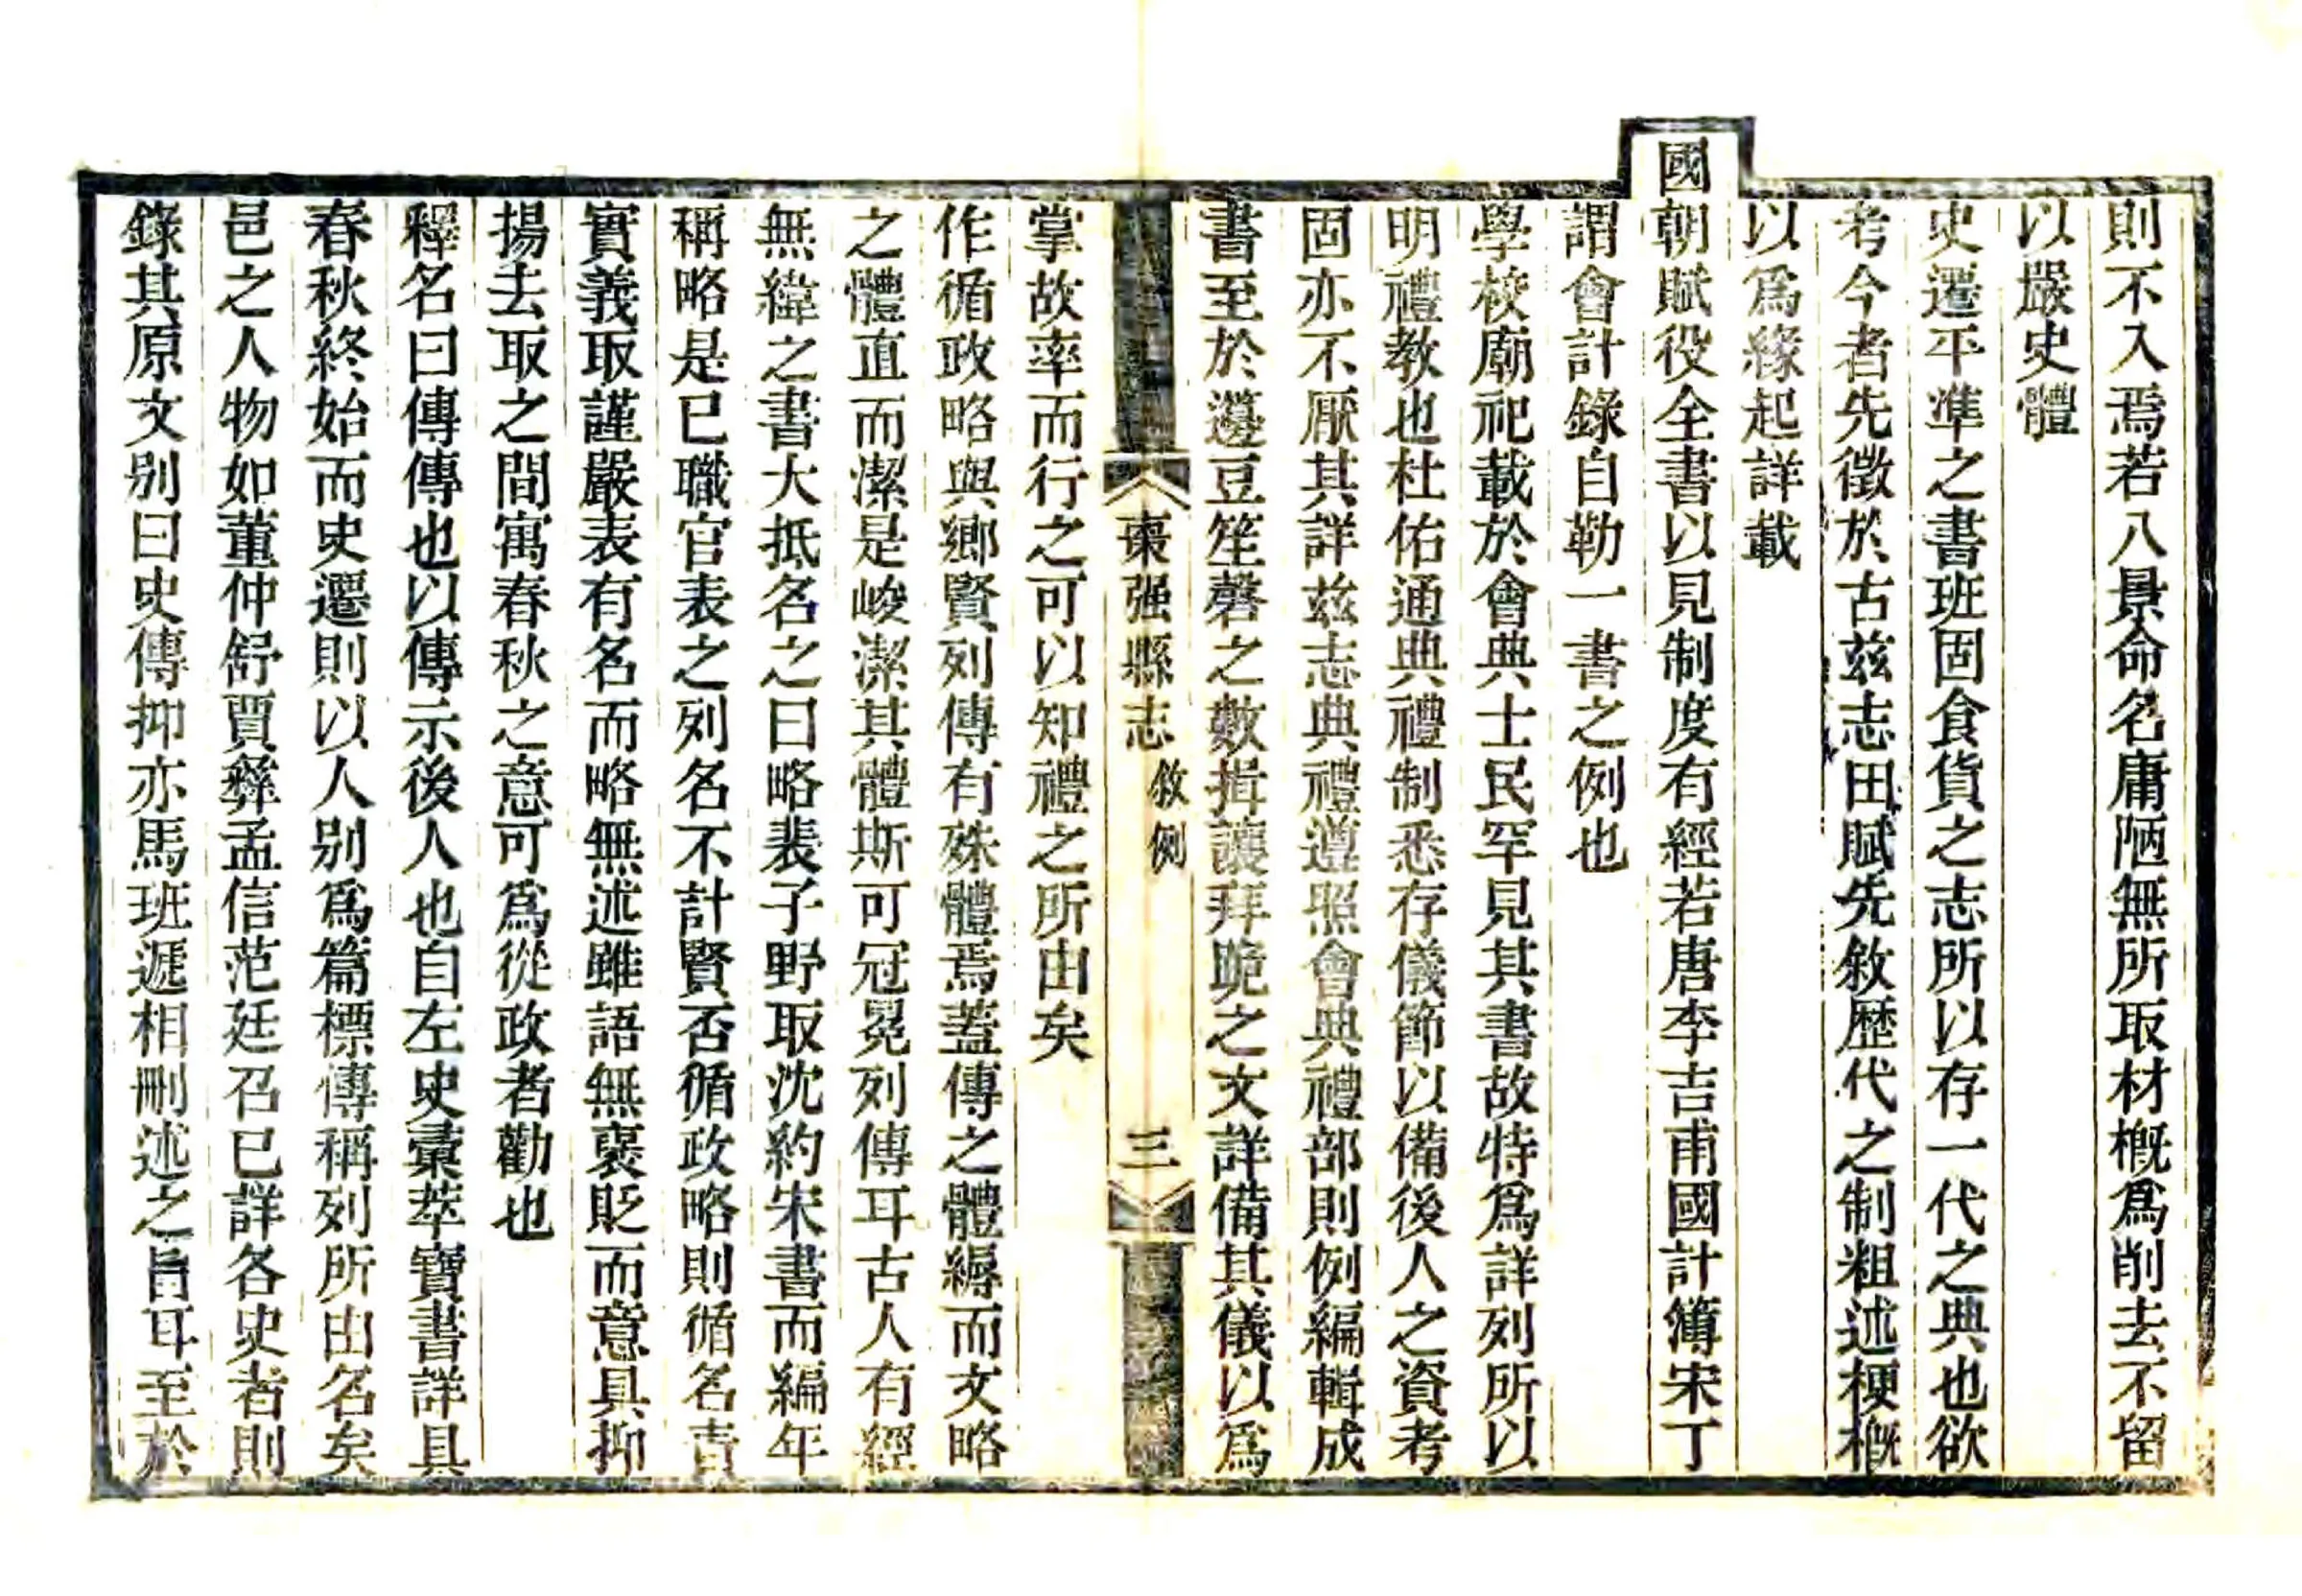 則不入焉若八景命名庸陋無所取材槪爲削去不留
以嚴史體
史遷平準之書班固食貨之志所以存一代之典也欲
考今者先徵於古茲志田賦先敘歷代之制粗述梗槪
以爲緣起詳載
國朝賦役全書以見制度有經若唐李吉甫國計簿宋丁
謂會計錄自勒一書之例也
學校廟祀載於會典士民罕見其書故特爲詳列所以
明禮教也杜佑通典禮制悉存儀節以備後人之資考
固亦不厭其詳茲志典禮遵照會典禮部則例編輯成
書至於籩豆笙磬之數揖讓拜跪之文詳備其儀以爲
棗强縣志 敘例 三
掌故率而行之可以知禮之所由矣
作循政略與鄉賢列傳有殊體焉蓋傳之體縟而文略
之體直而潔是峻潔其體斯可冠冕列傳耳古人有經
無緯之書大抵名之曰略裴子野取沈約宋書而編年
稱略是已職官表之列名不計賢否循政略則循名責
實義取謹嚴表有名而略無述雖語無襃貶而意具抑
揚去取之間寓春秋之意可爲從政者勸也
釋名曰傳傳也以傳示後人也自左史彙萃寶書詳具
春秋終始而史遷則以人別爲篇標傳稱列所由名矣
邑之人物如董仲舒賈彝孟信范廷召已詳各史者則
錄其原文別曰史傳抑亦馬班遞相刪述之旨耳至於